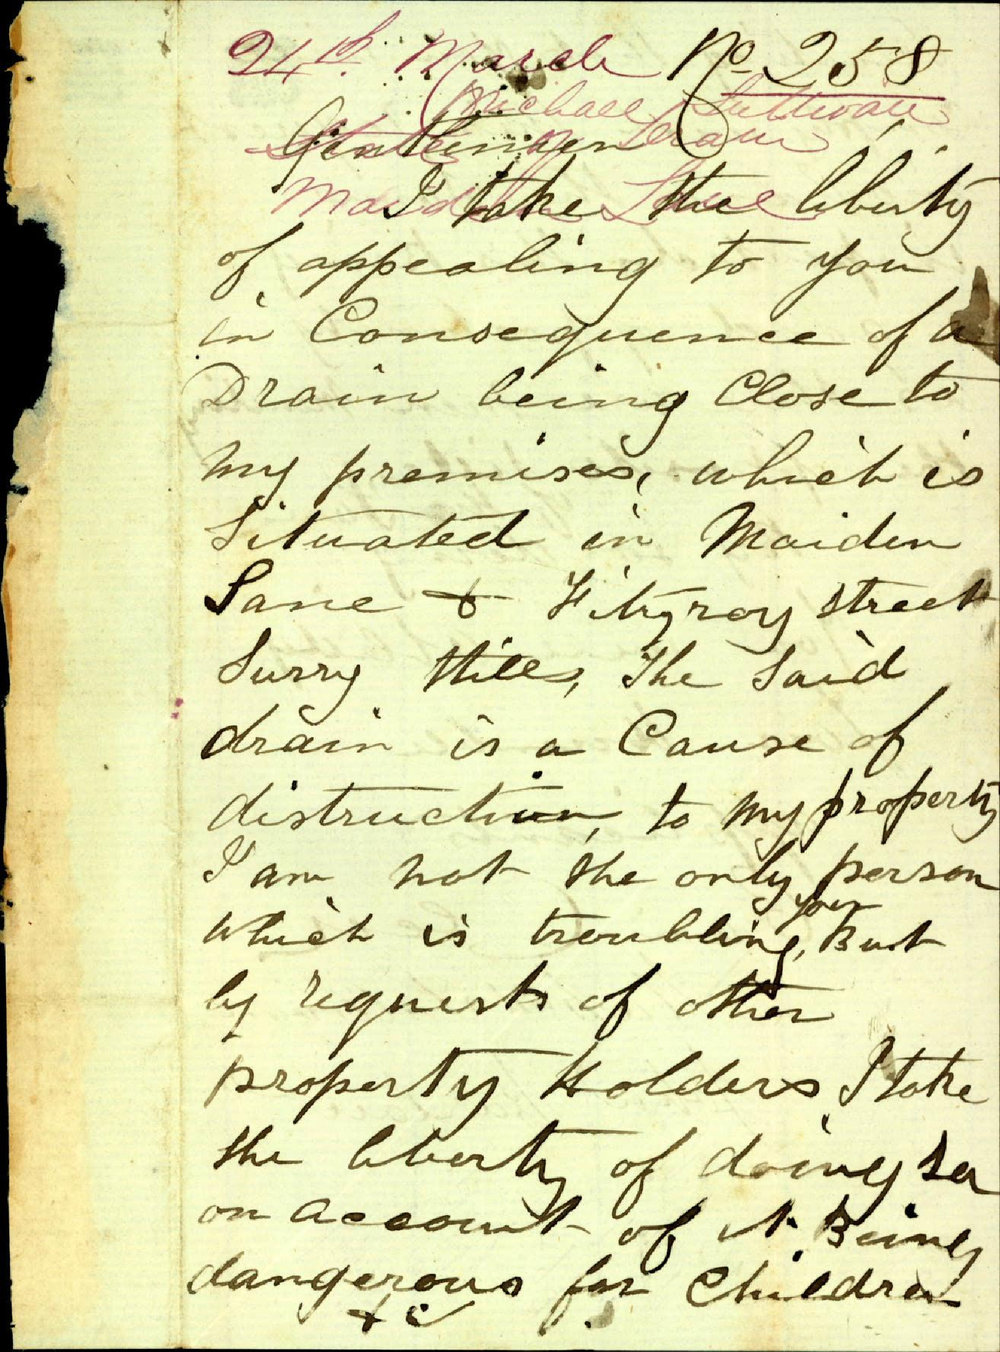 24th. March No 258
Michael Sullivan
Gentlemen
State of Drain
Maiden Lane
I take the liberty
of appealing to you
in Consequence of a
Drain being Close to
my premises, which is
Situated in Maiden
Lane & Fitzroy street
Surry Hills, The Said
drain is a Cause of
distruction, to my property
I am not the only person
which is troubling, you But
by requests of other
property Holders I take
the liberty of doing so
on account of it Being
dangerous for Children
&c